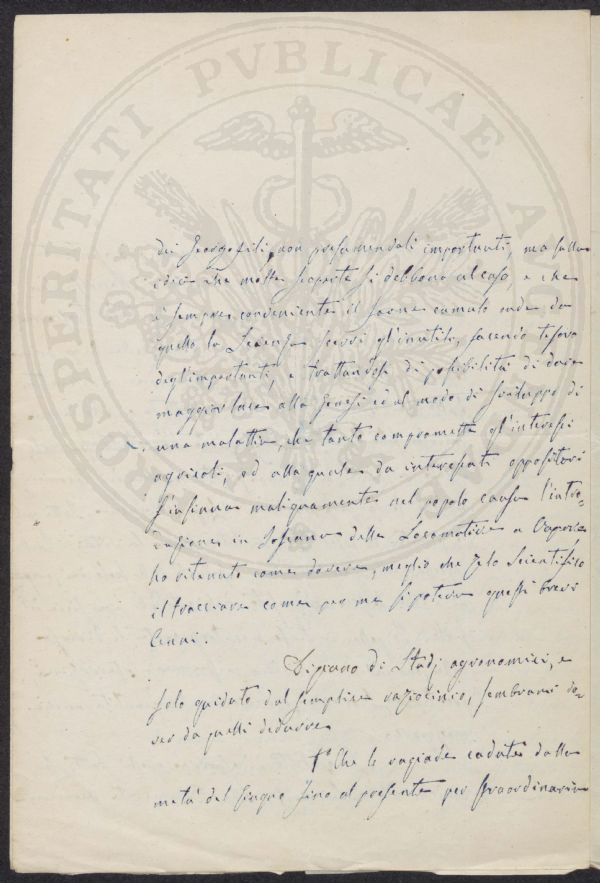 PROSPERITATI PVBLICAE AVG
dei Georgofili, non presumendoli importanti, ma sulla
idea che molte scoperte si debbono al caso, e che
è sempre conveniente il farne cumulo onde da
quello la Scienza scevri gl'inutili, facendo tesoro
degl'importanti, e trattandosi di possibilità di dare
maggior luce alla genesi ed al modo di sviluppo di
una malattia, che tanto compromette gl'interessi
agricoli, ed alla quale da interessati oppositori
s'insinua malignamente nel popolo causa l'intro-
duzione in Toscana delle Locomotive a Vapore
ho ritenuto come dovere, meglio che zelo scientifico
il tracciare come per me si poteva questi brevi
Cenni.
Digiuno di Studj agronomici, e
solo guidato dal semplice raziocinio, sembrami do-
ver da quelli dedurre
1° Che le rugiade cadute dalla
metà del Giugno fino al presente per straordinaria